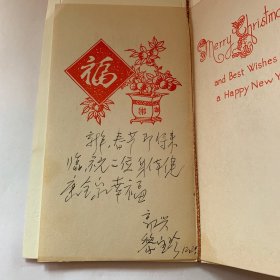 福
新年、春节即将来
临，祝二位身体健
康全家幸福
Merry Christmas
and Best Wishes
a Happy New Y